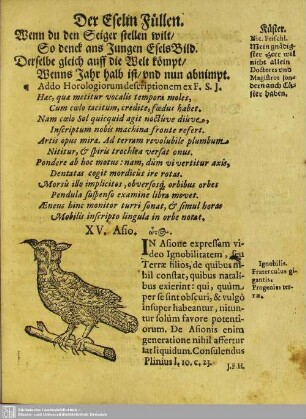 Der Eselin Füllen.
Wenn du den Seiger stellen wilt/
So denck ans Jungen Esels Bild.
Derselbe gleich auff die Welt kömpt/
Wenns Jahr halb ist/ und nun abnimpt.
Addo Horologiorum descriptionem ex F. S. J.
Hæc, quæ metitur vocalis tempora moles,
Cum cœlo tacitum, credite, fœdus habet.
Nam cœlo Sol quicquid agit noctuve diuve,
Inscriptum nobis machina fronte refert.
Artis opus mira. Ad terram revolubile plumbum
Nititur, & spiræ trochlea versat onus.
Pondere ab hoc motus: nam, dum vi vertitur axis,
Dentatas cogit mordicus ire rotas.
Morsu ille implicitos, obversosq; orbibus orbes
Pendula suspenso examine libra movet.
Æneus hinc monitor turri sonat, & simul horas
Mobilis inscripto lingula in orbe notat.
XV. Asio.
IN Asione expressam vi-
deo Ignobilitatem, seu
Terræ filios, de quibus ni-
hil constat, quibus natali-
bus exierint: qui, quùm
per se sint obscuri, & vulgò
insuper habeantur, nitun-
tur solùm favore potenti-
orum. De Asionis enim
generatione nihil affertur
liquidum. Consulendus
Plinius l. 10. c. 23.
J.P.H.
Küster.
Nic. Frischl.
Mein gnädig-
ster Herr wil
nicht allein
Doctores und
Magistros son-
dern auch Cü-
ster haben.
Ignobilis.
Fraterculus gi-
gantis.
Progenies ter-
ræ.